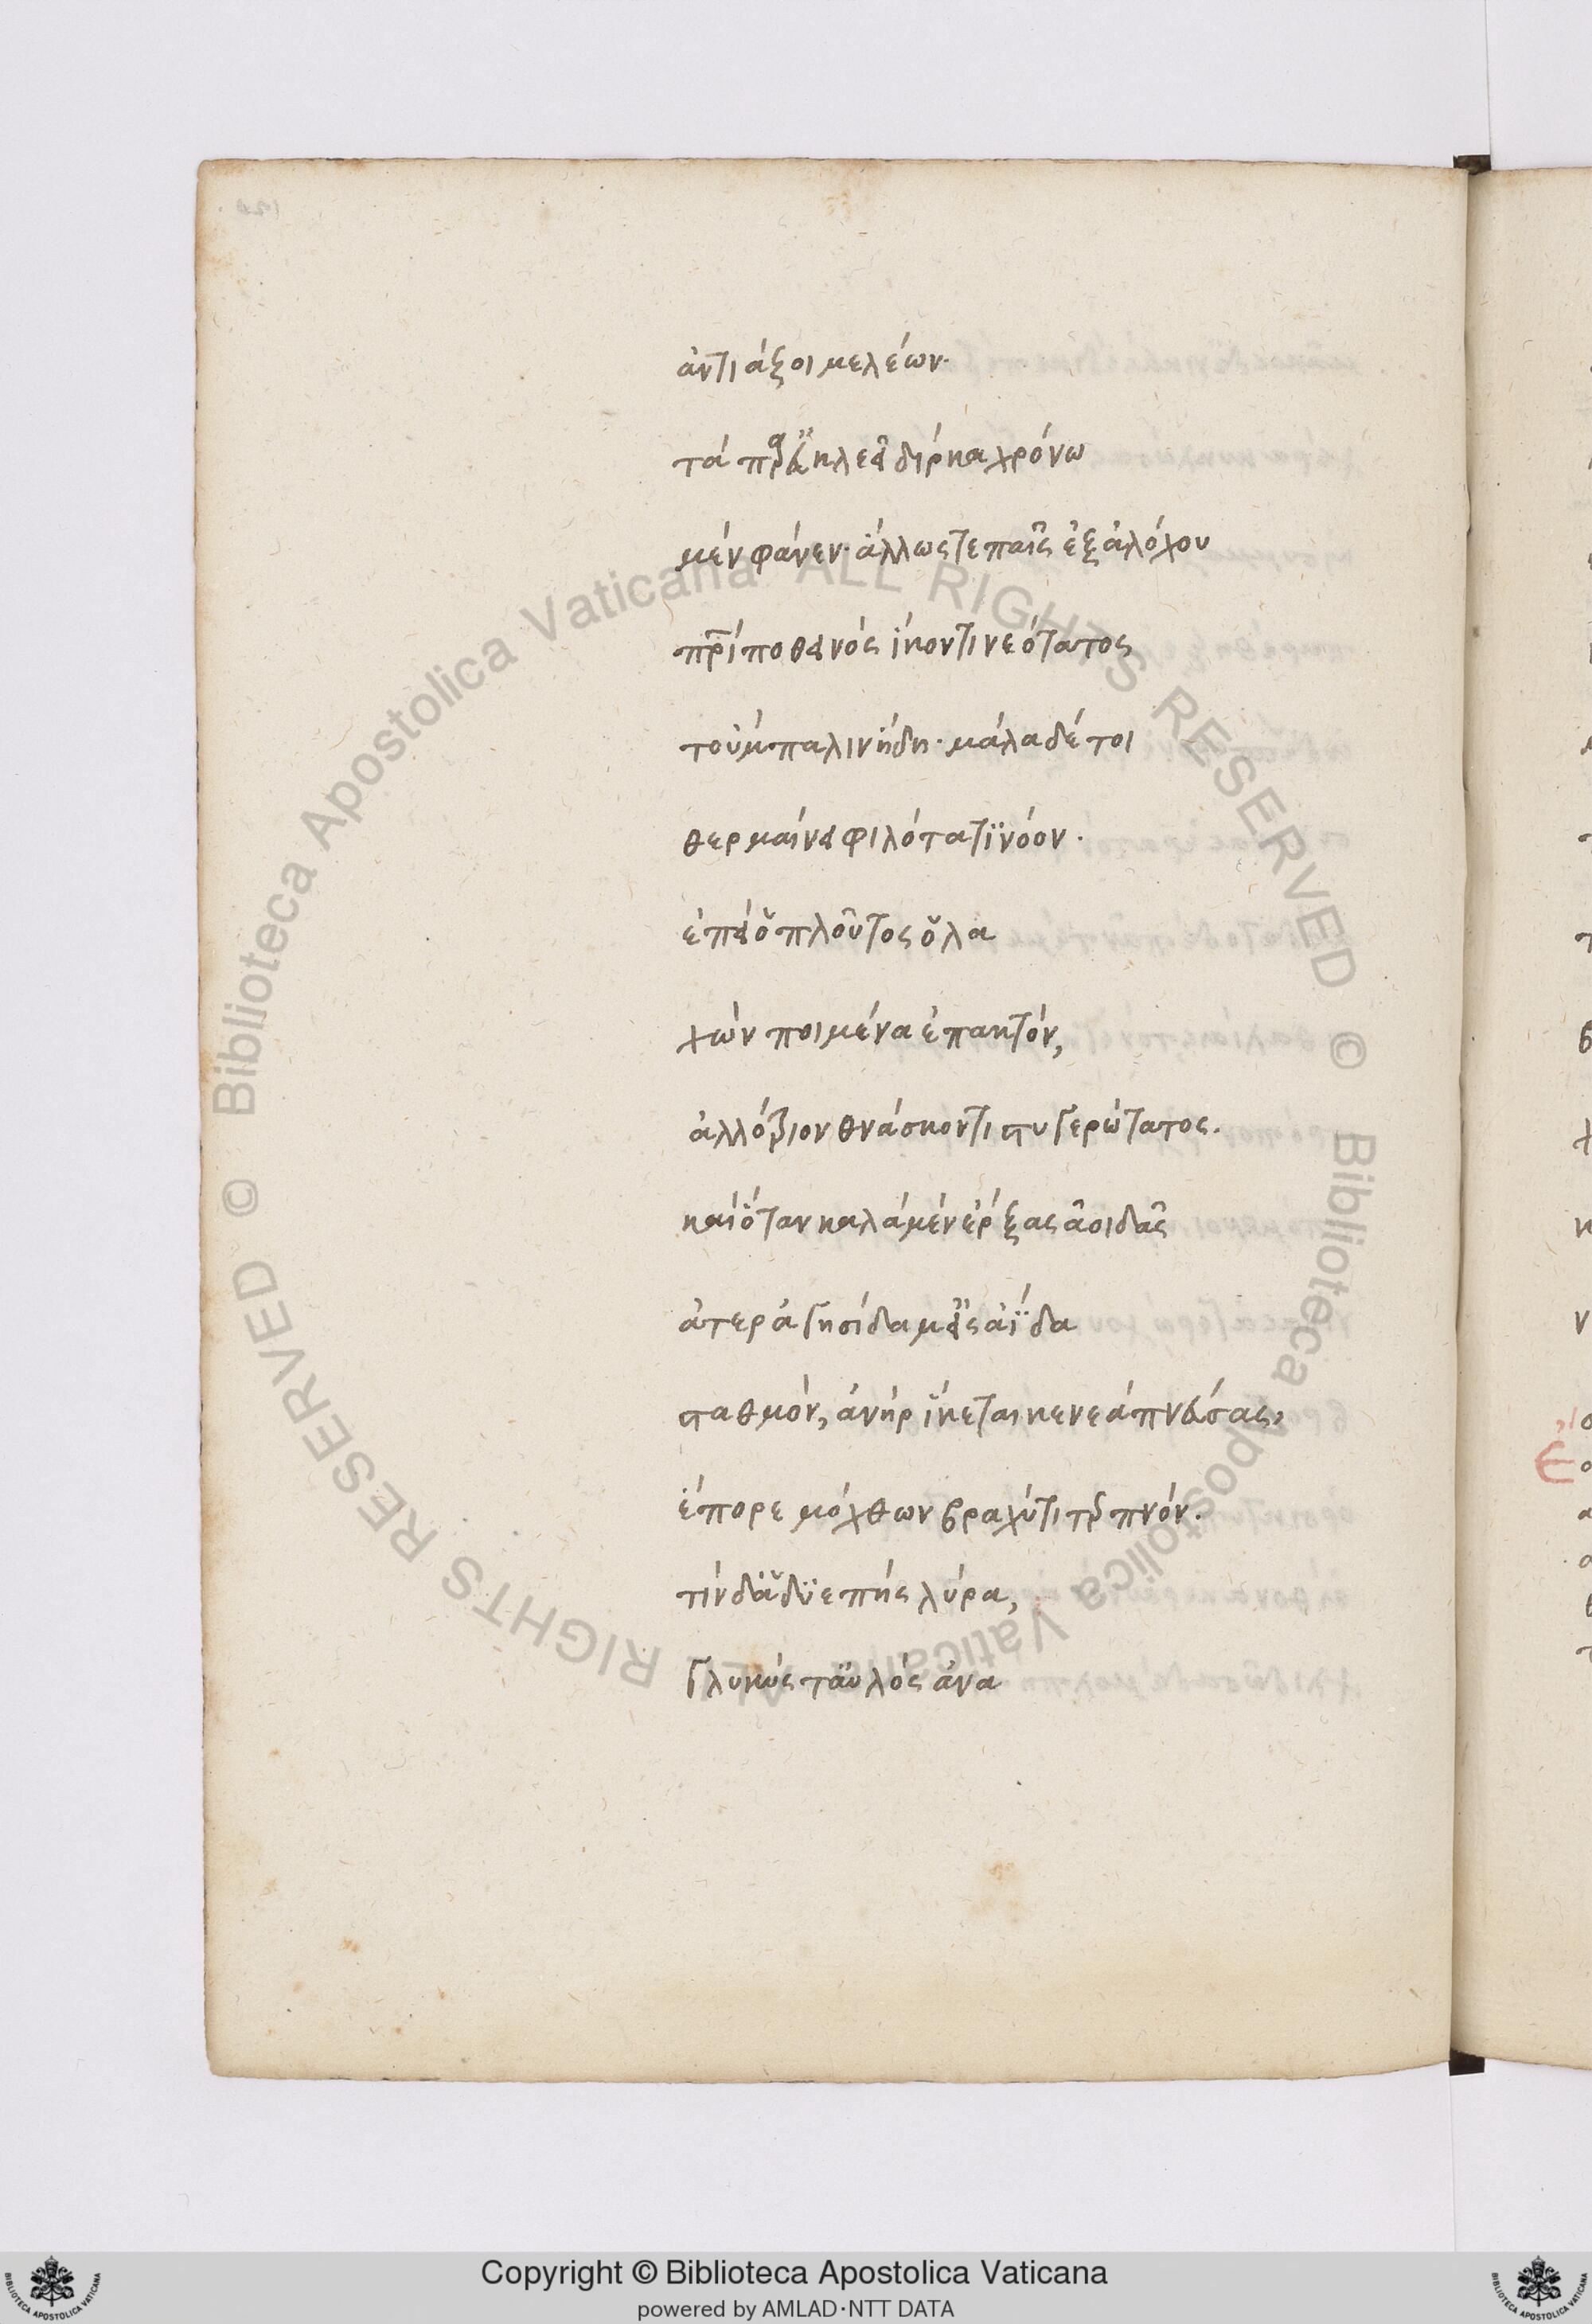 ἀντιάξοι μελέων·
τά παρ' εὐκλέϊ δίρκα χρόνω
μέν φάνεν· ἀλλ' ὥς τε παῖς ἐξ ἀλόχου
πατρί ποθεινός ἵκοντι νεότατος
τοὔμπαλιν ἤδη· μάλα δέ τοι
θερμαίνει φιλότατι νόον·
ἐπεί ὁ πλοῦτος ὁ λα
χών ποιμένα ἐπακτόν,
ἀλλότριον θνάσκοντι στυγερώτατος.
καί ὅταν καλά μέν ἔρξας ἀοιδᾶς
ἄτερ ἀγησίδαμ' εἰς ἀΐδα
σταθμόν, ἀνήρ ἵκεται κενεά πνεύσας,
ἔπορε μόχθων βραχύ τι τερπνόν.
τίν δ' ἁδυεπής λύρα,
γλυκύς τ' αὐλός ἀνα
Copyright © Biblioteca Apostolica Vaticana
powered by AMLAD·NTT DATA